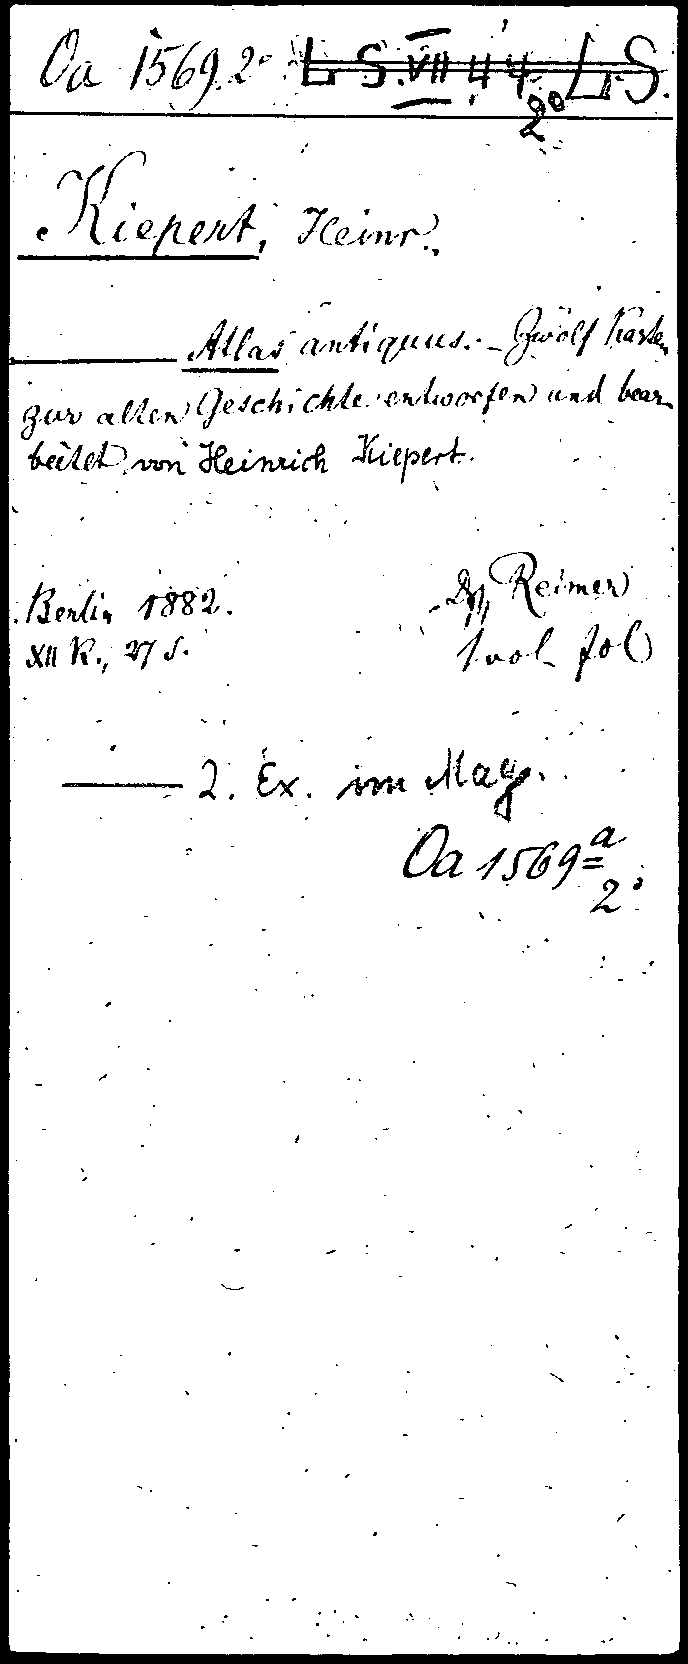 Oa 1569. 2° L S. VII 44. 2° L. S.
Kiepert, Heinr.
Atlas antiquus. - Zwölf Karten
zur alten Geschichte entworfen und bear-
beitet von Heinrich Kiepert.
Berlin 1882. Reimer
XII K., 27 S. 1 vol fol
2. Ex. im Mag.
Oa 1569 a
2°